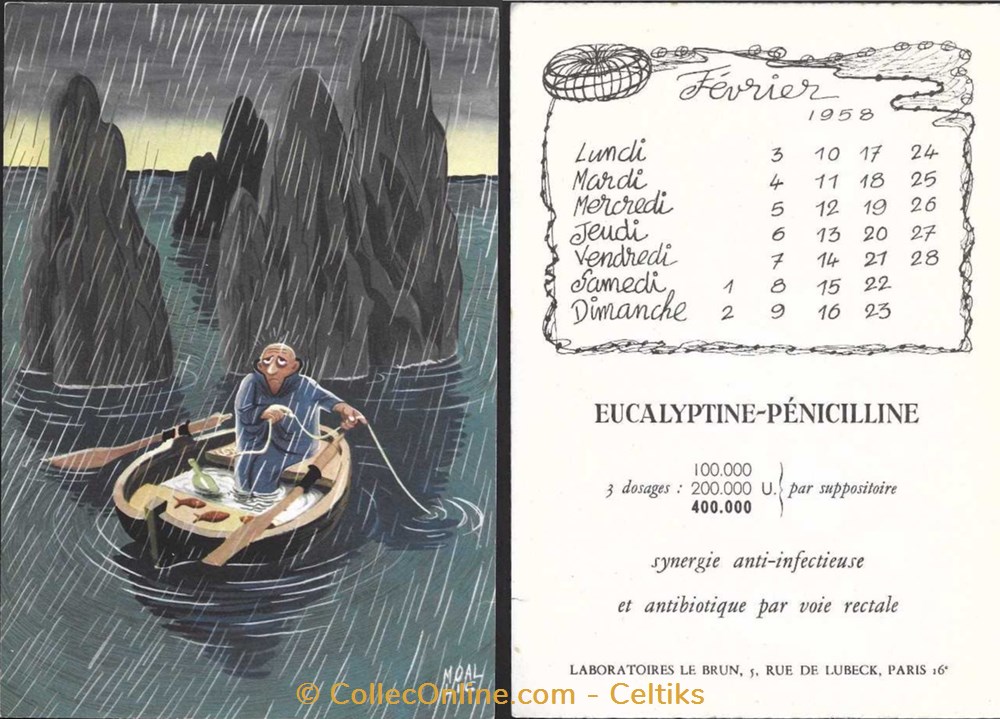 MOAL
MIC
Février
1958
Lundi 3 10 17 24
Mardi 4 11 18 25
Mercredi 5 12 19 26
Jeudi 6 13 20 27
Vendredi 7 14 21 28
Samedi 1 8 15 22
Dimanche 2 9 16 23
EUCALYPTINE-PÉNICILLINE
100.000
3 dosages : 200.000 U. par suppositoire
400.000
synergie anti-infectieuse
et antibiotique par voie rectale
LABORATOIRES LE BRUN, 5, RUE DE LUBECK, PARIS 16e
© CollecOnline.com - Celtiks